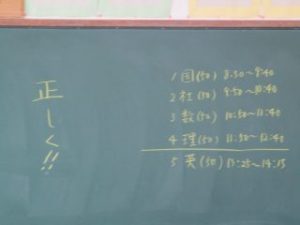 正しく!!
1 国(50) 8:50~9:40
2 社(50) 9:50~10:40
3 数(50) 10:50~11:40
4 理(50) 11:50~12:40
5 英(50) 13:25~14:15